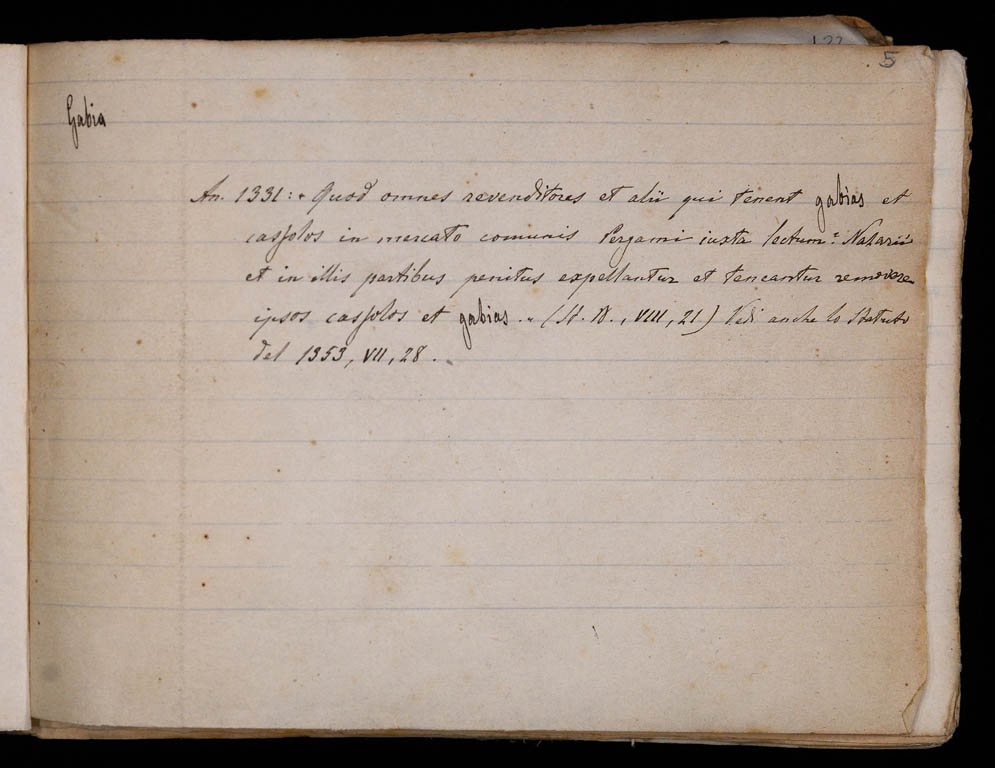 5
Gabia
An. 1331: « Quod omnes revenditores et alii qui tenent gabias et
cassolos in mercato comunis Pergami iuxta lectum Nazarii
et in illis partibus penitus expellantur et teneantur removere
ipsos cassolos et gabias. » (St. , VIII, 21) Vedi anche lo Statuto
del 1353, VII, 28.